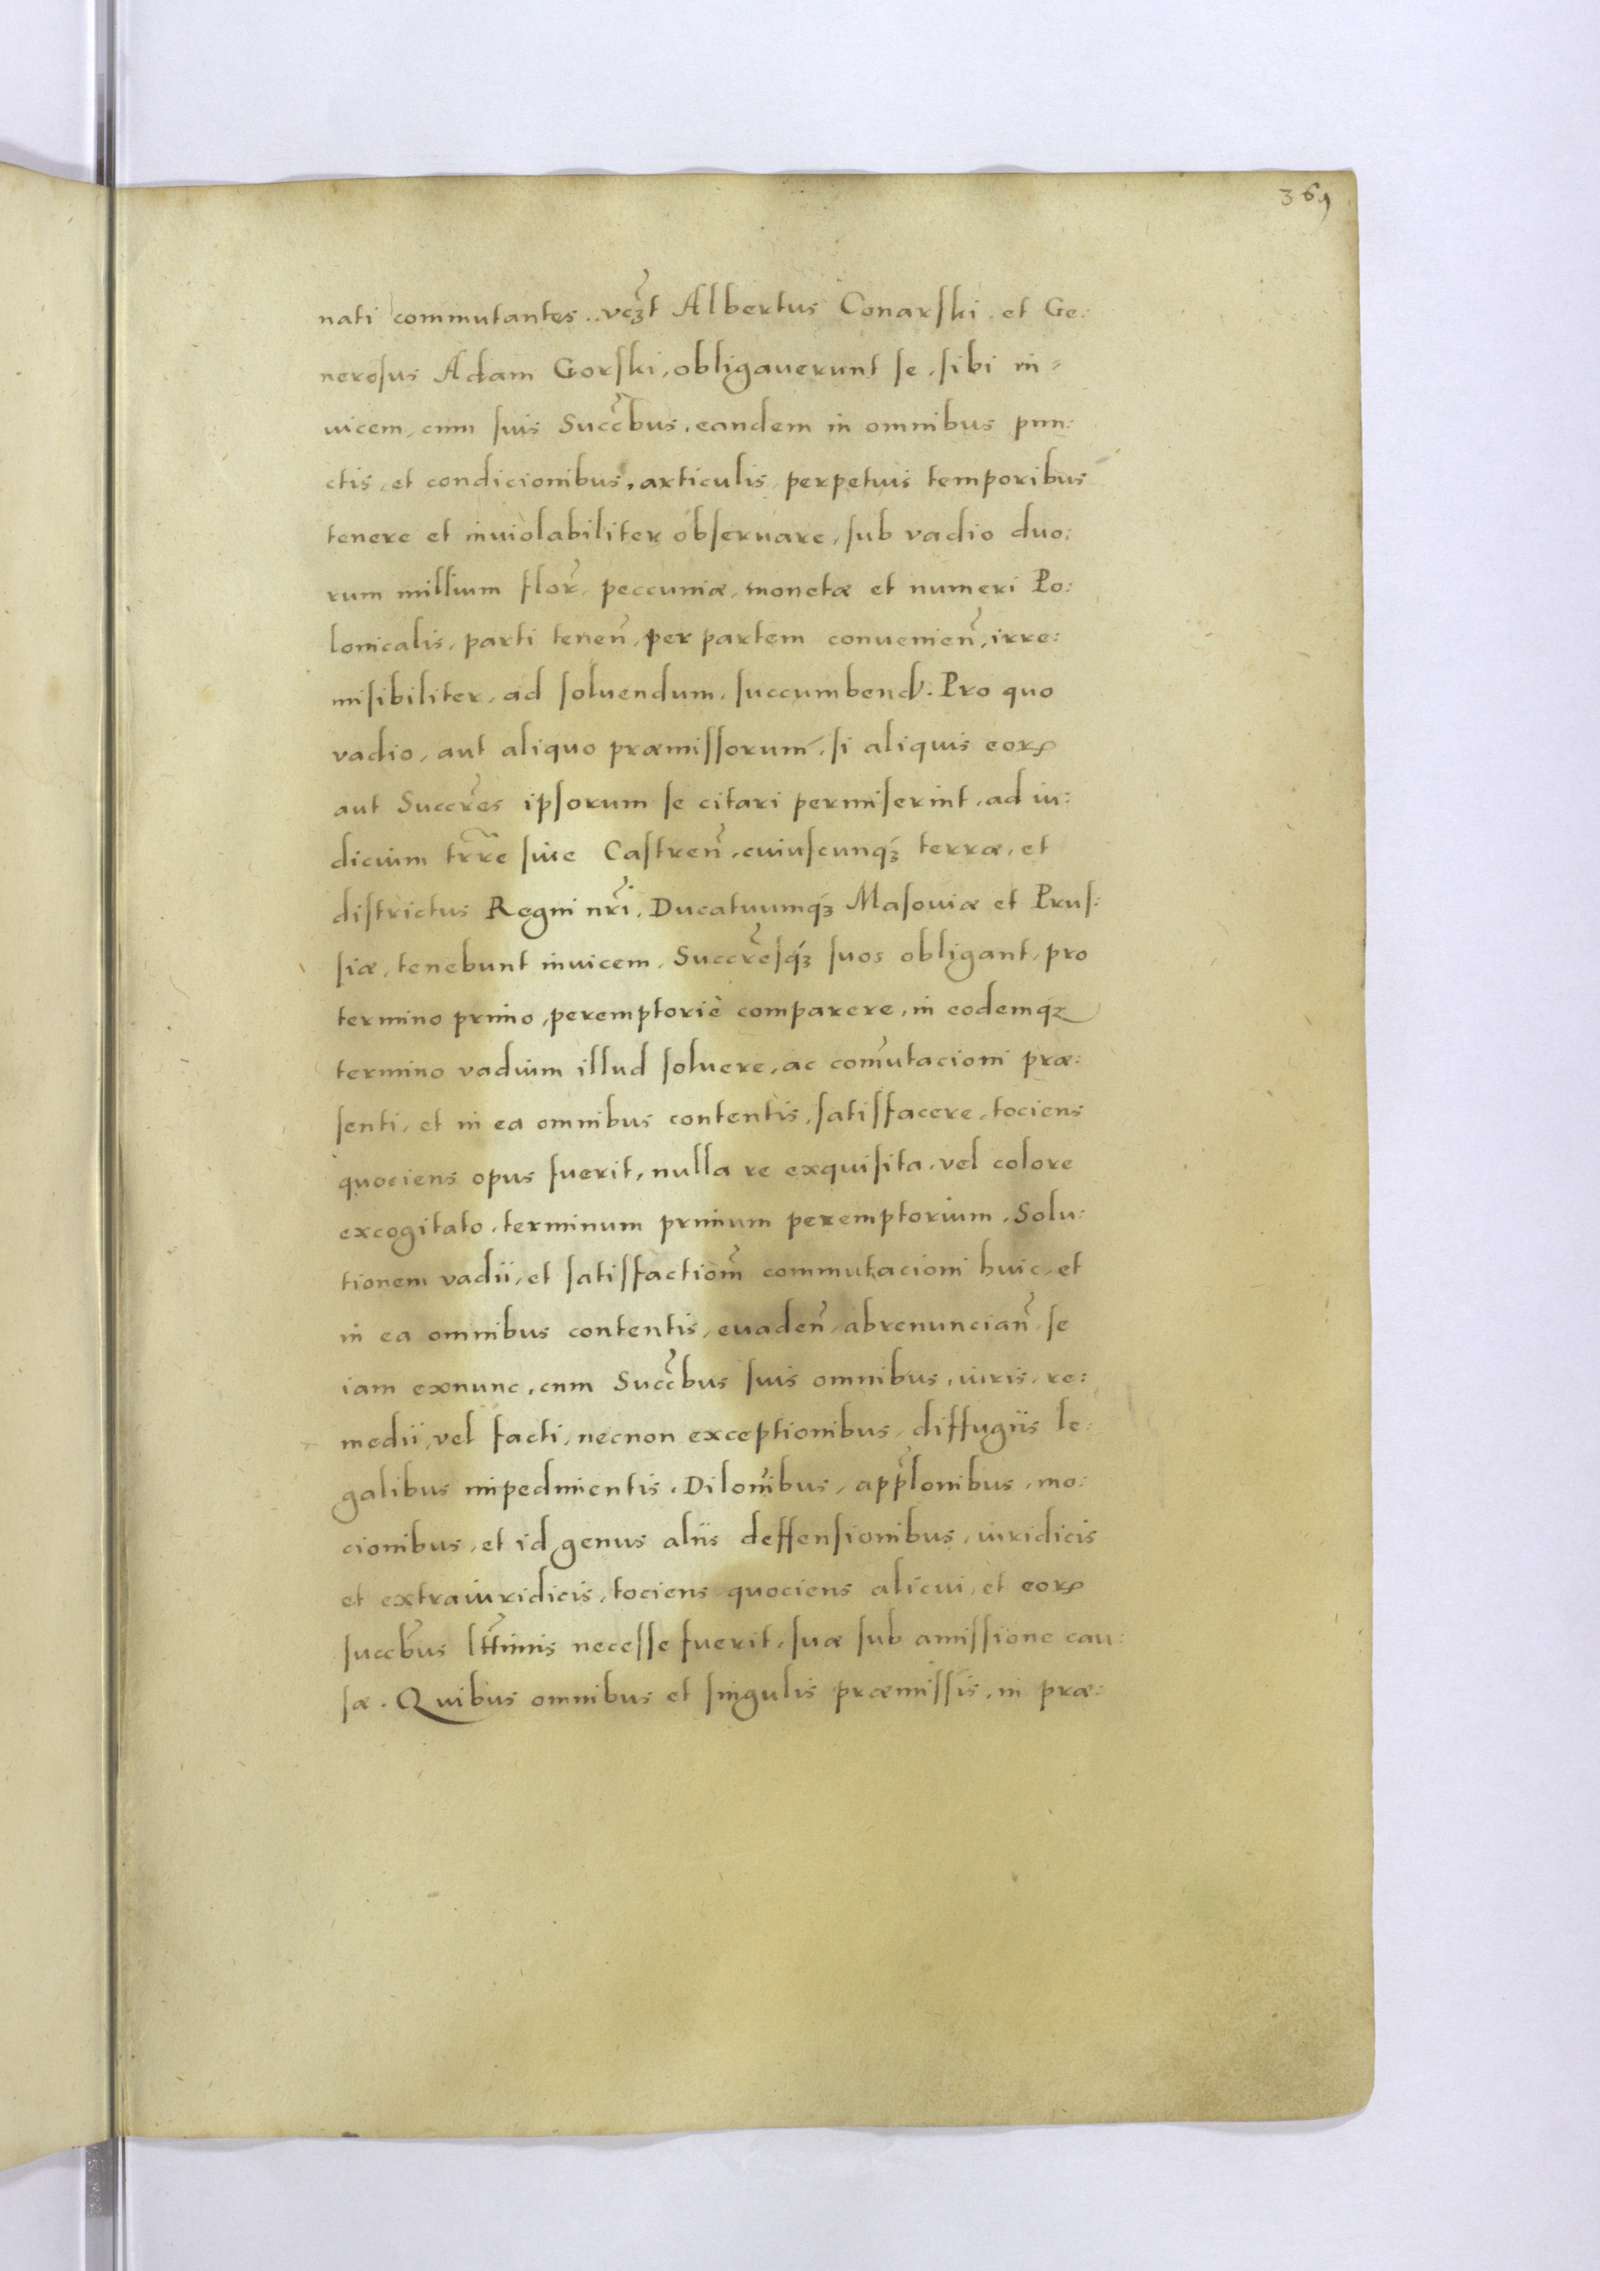 369
nati commutantes..vcꝫt Albertus Conarski. et Ge:
nerosus Adam Gorski, obligauerunt se, sibi in-
uicem, cum suis Succ̃bus, eandem in omnibus pun:
ctis, et condicionibus, articulis, perpetuis temporibus
tenere et inuiolabiliter obseruare, sub vadio duo:
rum millium flor̃, peccuniæ, monetæ et numeri Po:
lonicalis, parti teneñ, per partem convenieñ, irre:
misibiliter, ad soluendum, succumbend. Pro quo
vadio, aut aliquo præmissorum, si aliquis eorꝝ
aut Succr̃es ipsorum se citari permiserint, ad iu:
dicium tr̃re siue Castreñ, cuiuscunqꝫ terræ, et
districtus Regni nr̃i, Ducatuumqꝫ Masouiæ et Prus:
siæ, tenebunt inuicem, Succr̃esqꝫ suos obligant, pro
termino primo, peremptoriè comparere, in eodemqꝫ
termino vadium illud soluere, ac com̃utacioni præ:
senti, et in ea omnibus contentis, satisfacere, tociens
quociens opus fuerit, nulla re exquisita, vel colore
excogitato, terminum primum peremptorium, Solu:
tionem vadii, et satisfactiom̃ commutacioni huic, et
in ea omnibus contentis, euadeñ, abrenunciañ, se
iam exnunc, cum Succ̃bus suis omnibus, iuris, re:
medii, vel facti, necnon exceptionibus, diffugiis le:
galibus impedimentis. Dilom̃bus, app̃lonibus, mo:
cionibus, et id genus aliis deffensionibus, iuridicis
et extraiuridicis, tociens quociens alicui, et eorꝝ
succb̃us ltt̃imis necesse fuerit, suæ sub amissione cau:
sæ. Quibus omnibus et singulis præmissis, in præ: